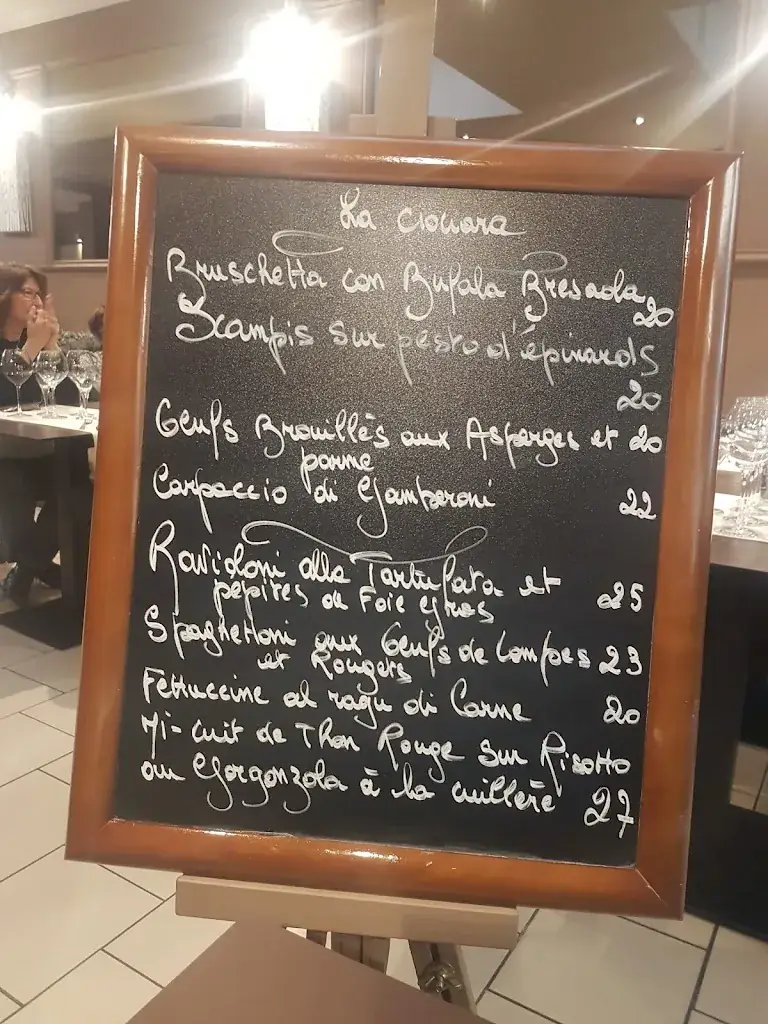 La ciouara
Bruschetta con Bufala Bresaola 20
Scampis sur pesto d'épinards
20
Oeufs Brouillés aux Asperges et 20
parme
Carpaccio di Gamberoni 22
Ravioloni alla Tartufata et 25
pépites de Foie gras
Spaghettoni aux Oeufs de Lompes 23
et Rougets
Fettuccine al ragu di Carne 20
Mi-cuit de Thon Rouge sur Risotto
au Gorgonzola à la cuillère 27